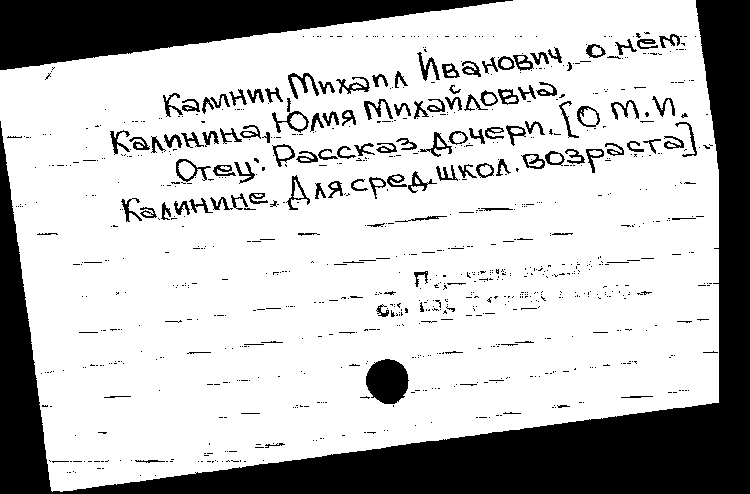 Калинин, Михаил Иванович, о нём
Калинина, Юлия Михайловна.
Отец: Рассказ дочери. [О М.И.
Калинине. Для сред. школ. возраста].